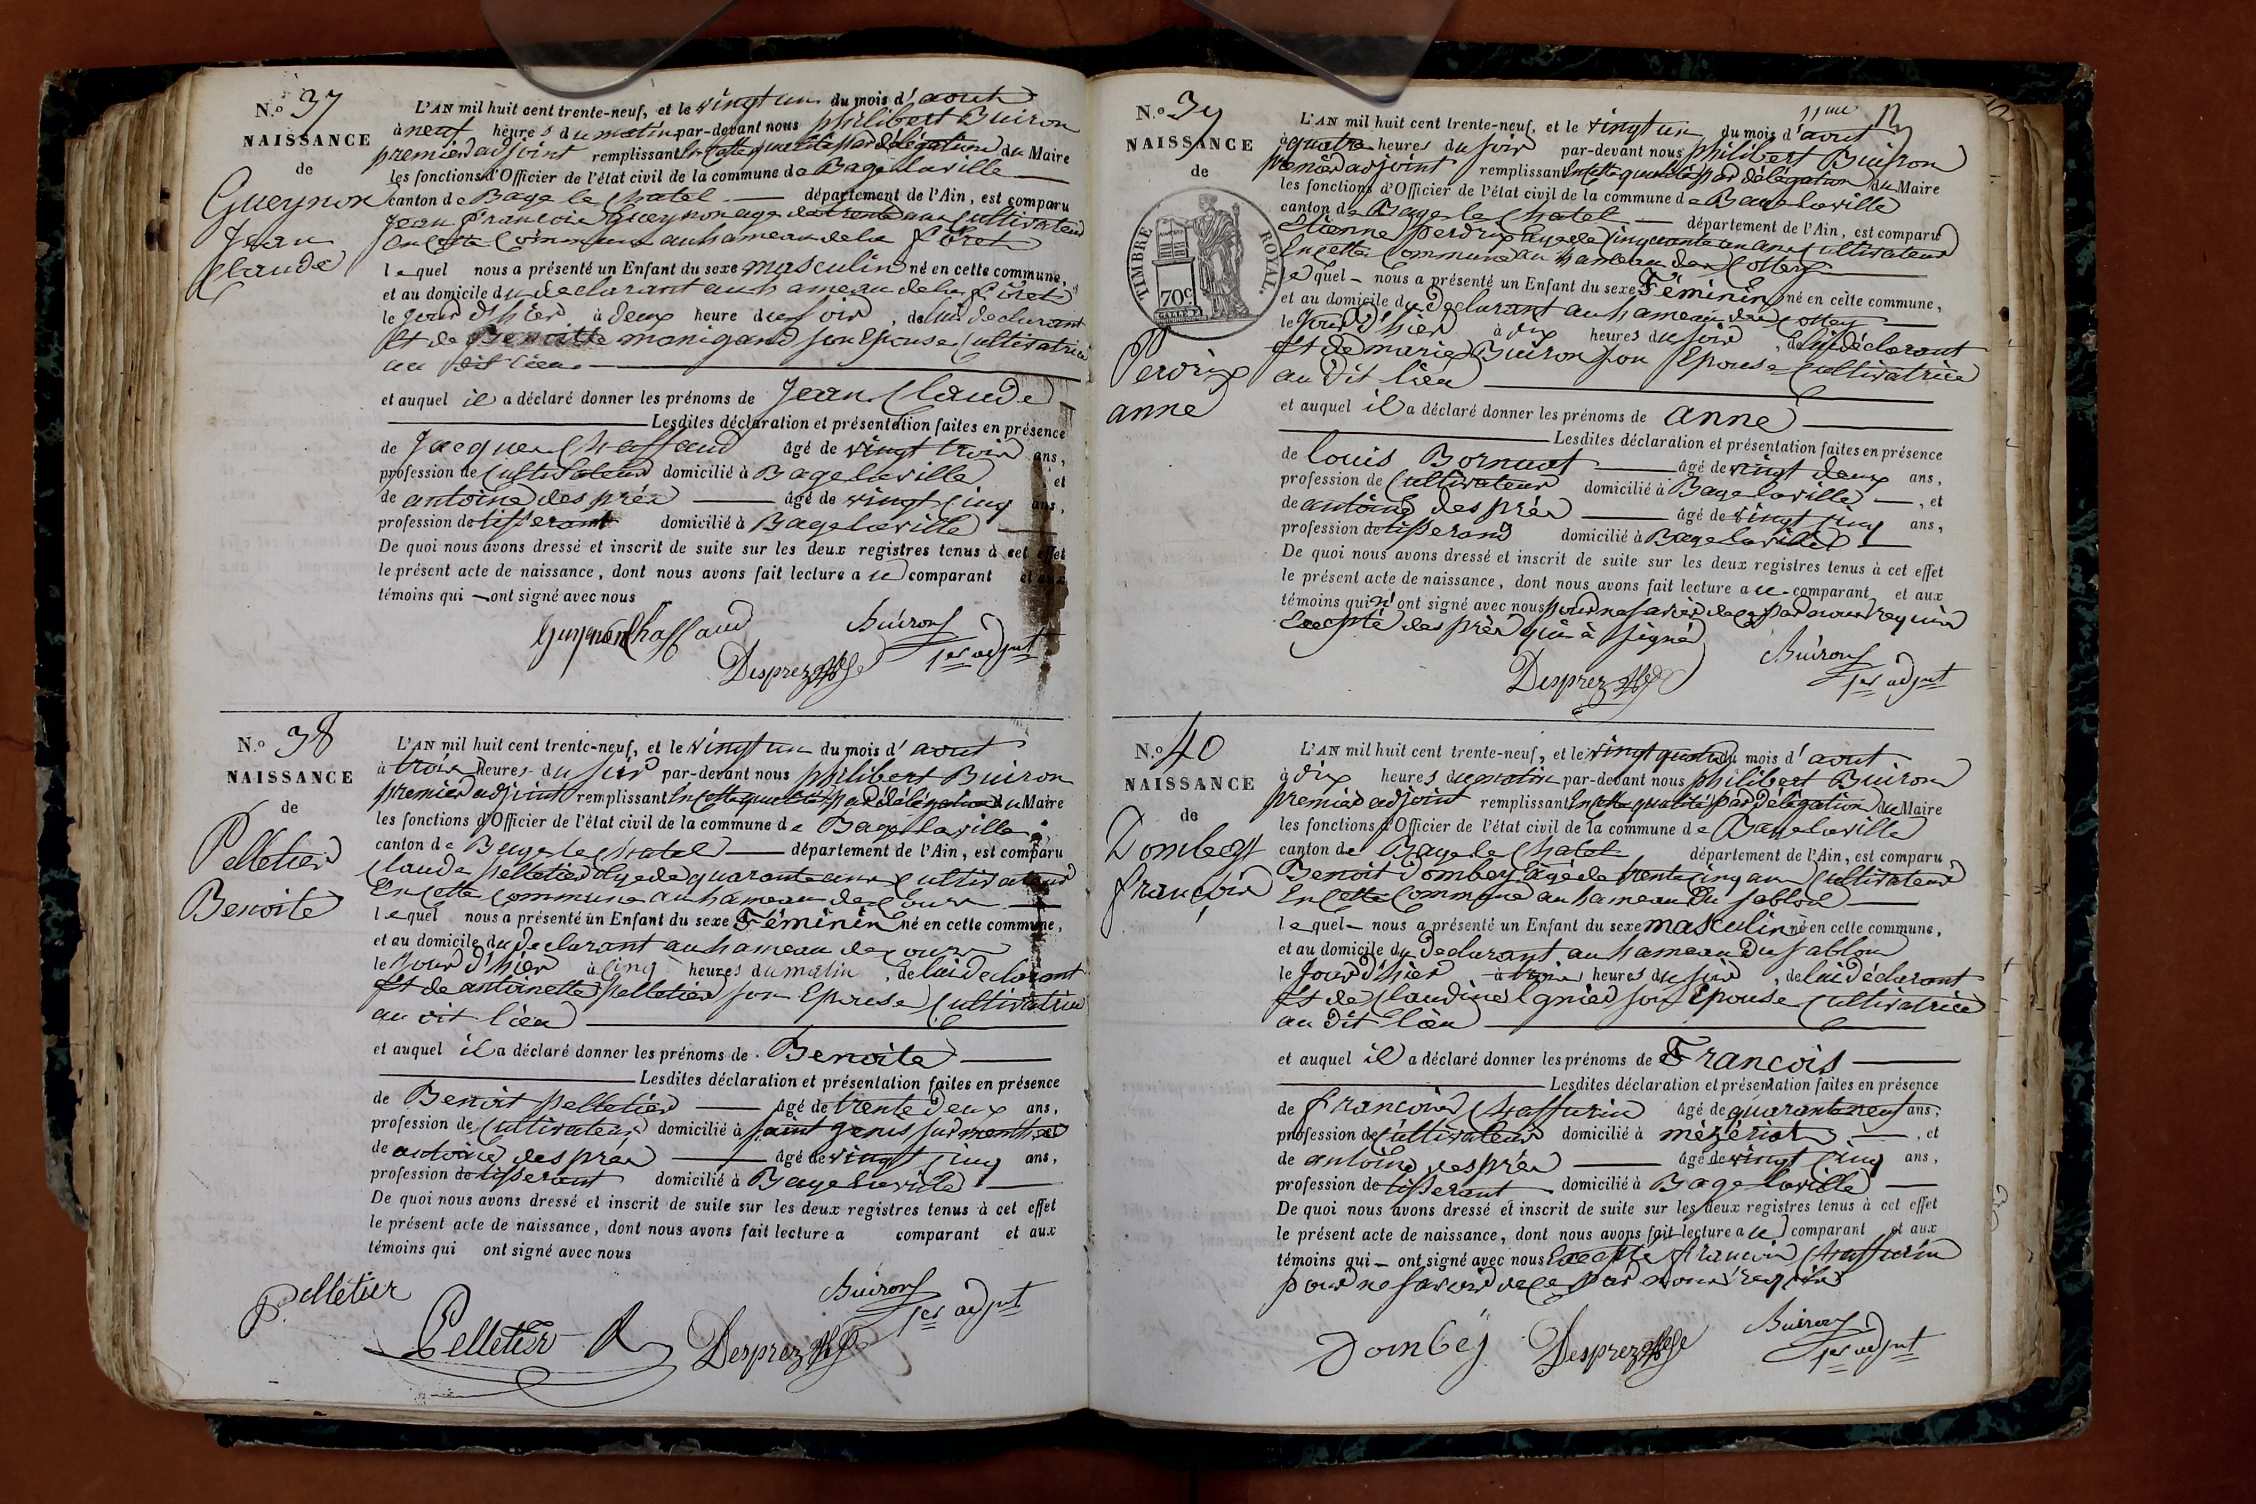 N.o 37
NAISSANCE
de
Gueynon
Jean
Claude
L'AN mil huit cent trente-neuf, et le vingt un du mois d'aout
à neuf heures du matin par-devant nous philibert Buiron
premier adjoint remplissant en cette qualité par délégation du Maire
les fonctions d'Officier de l'état civil de la commune de Bagé laville
canton de Bage le Chatel département de l'Ain, est comparu
Jean françois gueynon age de trente ans Cultivateur
En Cette Commune au hameau de la fôret
lequel nous a présenté un Enfant du sexe masculin né en cette commune,
et au domicile du declarant au hameau de la fôret
le jour d'hier à deux heure du soir, de lui declarant
Et de Benoitte manigand son Epouse Cultivatrice
au dit lieu
et auquel il a déclaré donner les prénoms de Jean Claude
Lesdites déclaration et présentation faites en présence
de Jacques Chaffaud âgé de vingt trois ans,
profession de Cultivateur domicilié à Bage laville et
de antoine desprér âgé de vingt Cinq ans,
profession de tisserant domicilié à Bage laville
De quoi nous avons dressé et inscrit de suite sur les deux registres tenus à cet effet
le présent acte de naissance, dont nous avons fait lecture a u comparant et aux
témoins qui ont signé avec nous
Gueynon Chaffaud Buiron
Desprez 1er adjut
N.o 38
NAISSANCE
de
Pelletier
Benoite
L'AN mil huit cent trente-neuf, et le vingt un du mois d'aout
à trois heures du soir par-devant nous philibert Buiron
premier adjoint remplissant en cette qualité par délégation du Maire
les fonctions d'Officier de l'état civil de la commune de Bagé laville
canton de Bage le Chatel département de l'Ain, est comparu
Claude pelletier age de quarante ans Cultivateur
En Cette Commune au hameau de Cours
lequel nous a présenté un Enfant du sexe Féminin né en cette commune,
et au domicile du declarant au hameau de Cours
le Jour d'hier à Cinq heures du matin, de lui declarant
Et de antoinette pelletier son Epouse Cultivatrice
au dit lieu
et auquel il a déclaré donner les prénoms de Benoite
Lesdites déclaration et présentation faites en présence
de Benoit pelletier âgé de trente deux ans,
profession de Cultivateur domicilié à saint genis sur menthon
de antoine desprér âgé de vingt Cinq ans,
profession de tisserant domicilié à Bage laville
De quoi nous avons dressé et inscrit de suite sur les deux registres tenus à cet effet
le présent acte de naissance, dont nous avons fait lecture a comparant et aux
témoins qui ont signé avec nous
P. elletier Buiron
Pelletier Desprez 1er adjut
11me
N.o 39
NAISSANCE
de
TIMBRE ROYAL.
70c
Perdrix
anne
L'AN mil huit cent trente-neuf, et le vingt un du mois d'aout
à quatre heures du soir par-devant nous philibert Buiron
premier adjoint remplissant en cette qualité par délégation du Maire
les fonctions d'Officier de l'état civil de la commune de Bage laville
canton de Bage le Chatel département de l'Ain, est comparu
Etienne perdrix age de cinquante un ans Cultivateur
En Cette Commune au hameau des Cottey
lequel nous a présenté un Enfant du sexe Féminin né en cette commune,
et au domicile du Declarant au hameau des Cottey
le Jour d'hier à dix heures du soir, de lui déclarant
Et de marie Buiron son Epouse Cultivatrice
au Dit lieu
et auquel il a déclaré donner les prénoms de anne
Lesdites déclaration et présentation faites en présence
de louis Bornuat âgé de vingt deux ans,
profession de Cultivateur domicilié à Bage laville, et
de antoine desprér âgé de vingt Cinq ans,
profession de tisserand domicilié à Bage laville
De quoi nous avons dressé et inscrit de suite sur les deux registres tenus à cet effet
le présent acte de naissance, dont nous avons fait lecture a u comparant et aux
témoins qui n'ont signé avec nous pour ne savoir de ce par nous requis
Excepté desprér qui à signé
Buiron
Desprez 1er adjut
N.o 40
NAISSANCE
de
Dombey
françois
L'AN mil huit cent trente-neuf, et le vingt quatre du mois d'aout
à dix heures du matin par-devant nous philibert Buiron
premier adjoint remplissant en cette qualité par délégation du Maire
les fonctions d'Officier de l'état civil de la commune de Bage laville
canton de Bage le Chatel département de l'Ain, est comparu
Benoit Dombey âgé de trente Cinq ans Cultivateur
En Cette Commune au hameau Du sablon
lequel nous a présenté un Enfant du sexe masculin né en cette commune,
et au domicile du Declarant au hameau Du sablon
le Jour d'hier à trois heures du soir, de lui déclarant
Et de Claudine Ignier son Epouse Cultivatrice
au Dit lieu
et auquel il a déclaré donner les prénoms de François
Lesdites déclaration et présentation faites en présence
de françois Chaffurin âgé de quarante neuf ans,
profession de Cultivateur domicilié à mézériat, et
de antoine desprér âgé de vingt Cinq ans,
profession de tisserant domicilié à Bage laville
De quoi nous avons dressé et inscrit de suite sur les deux registres tenus à cet effet
le présent acte de naissance, dont nous avons fait lecture a u comparant et aux
témoins qui ont signé avec nous Excepté françois Chaffurin
pour ne savoir de ce par nous requis
Buiron
Dombey Desprez 1er adjut